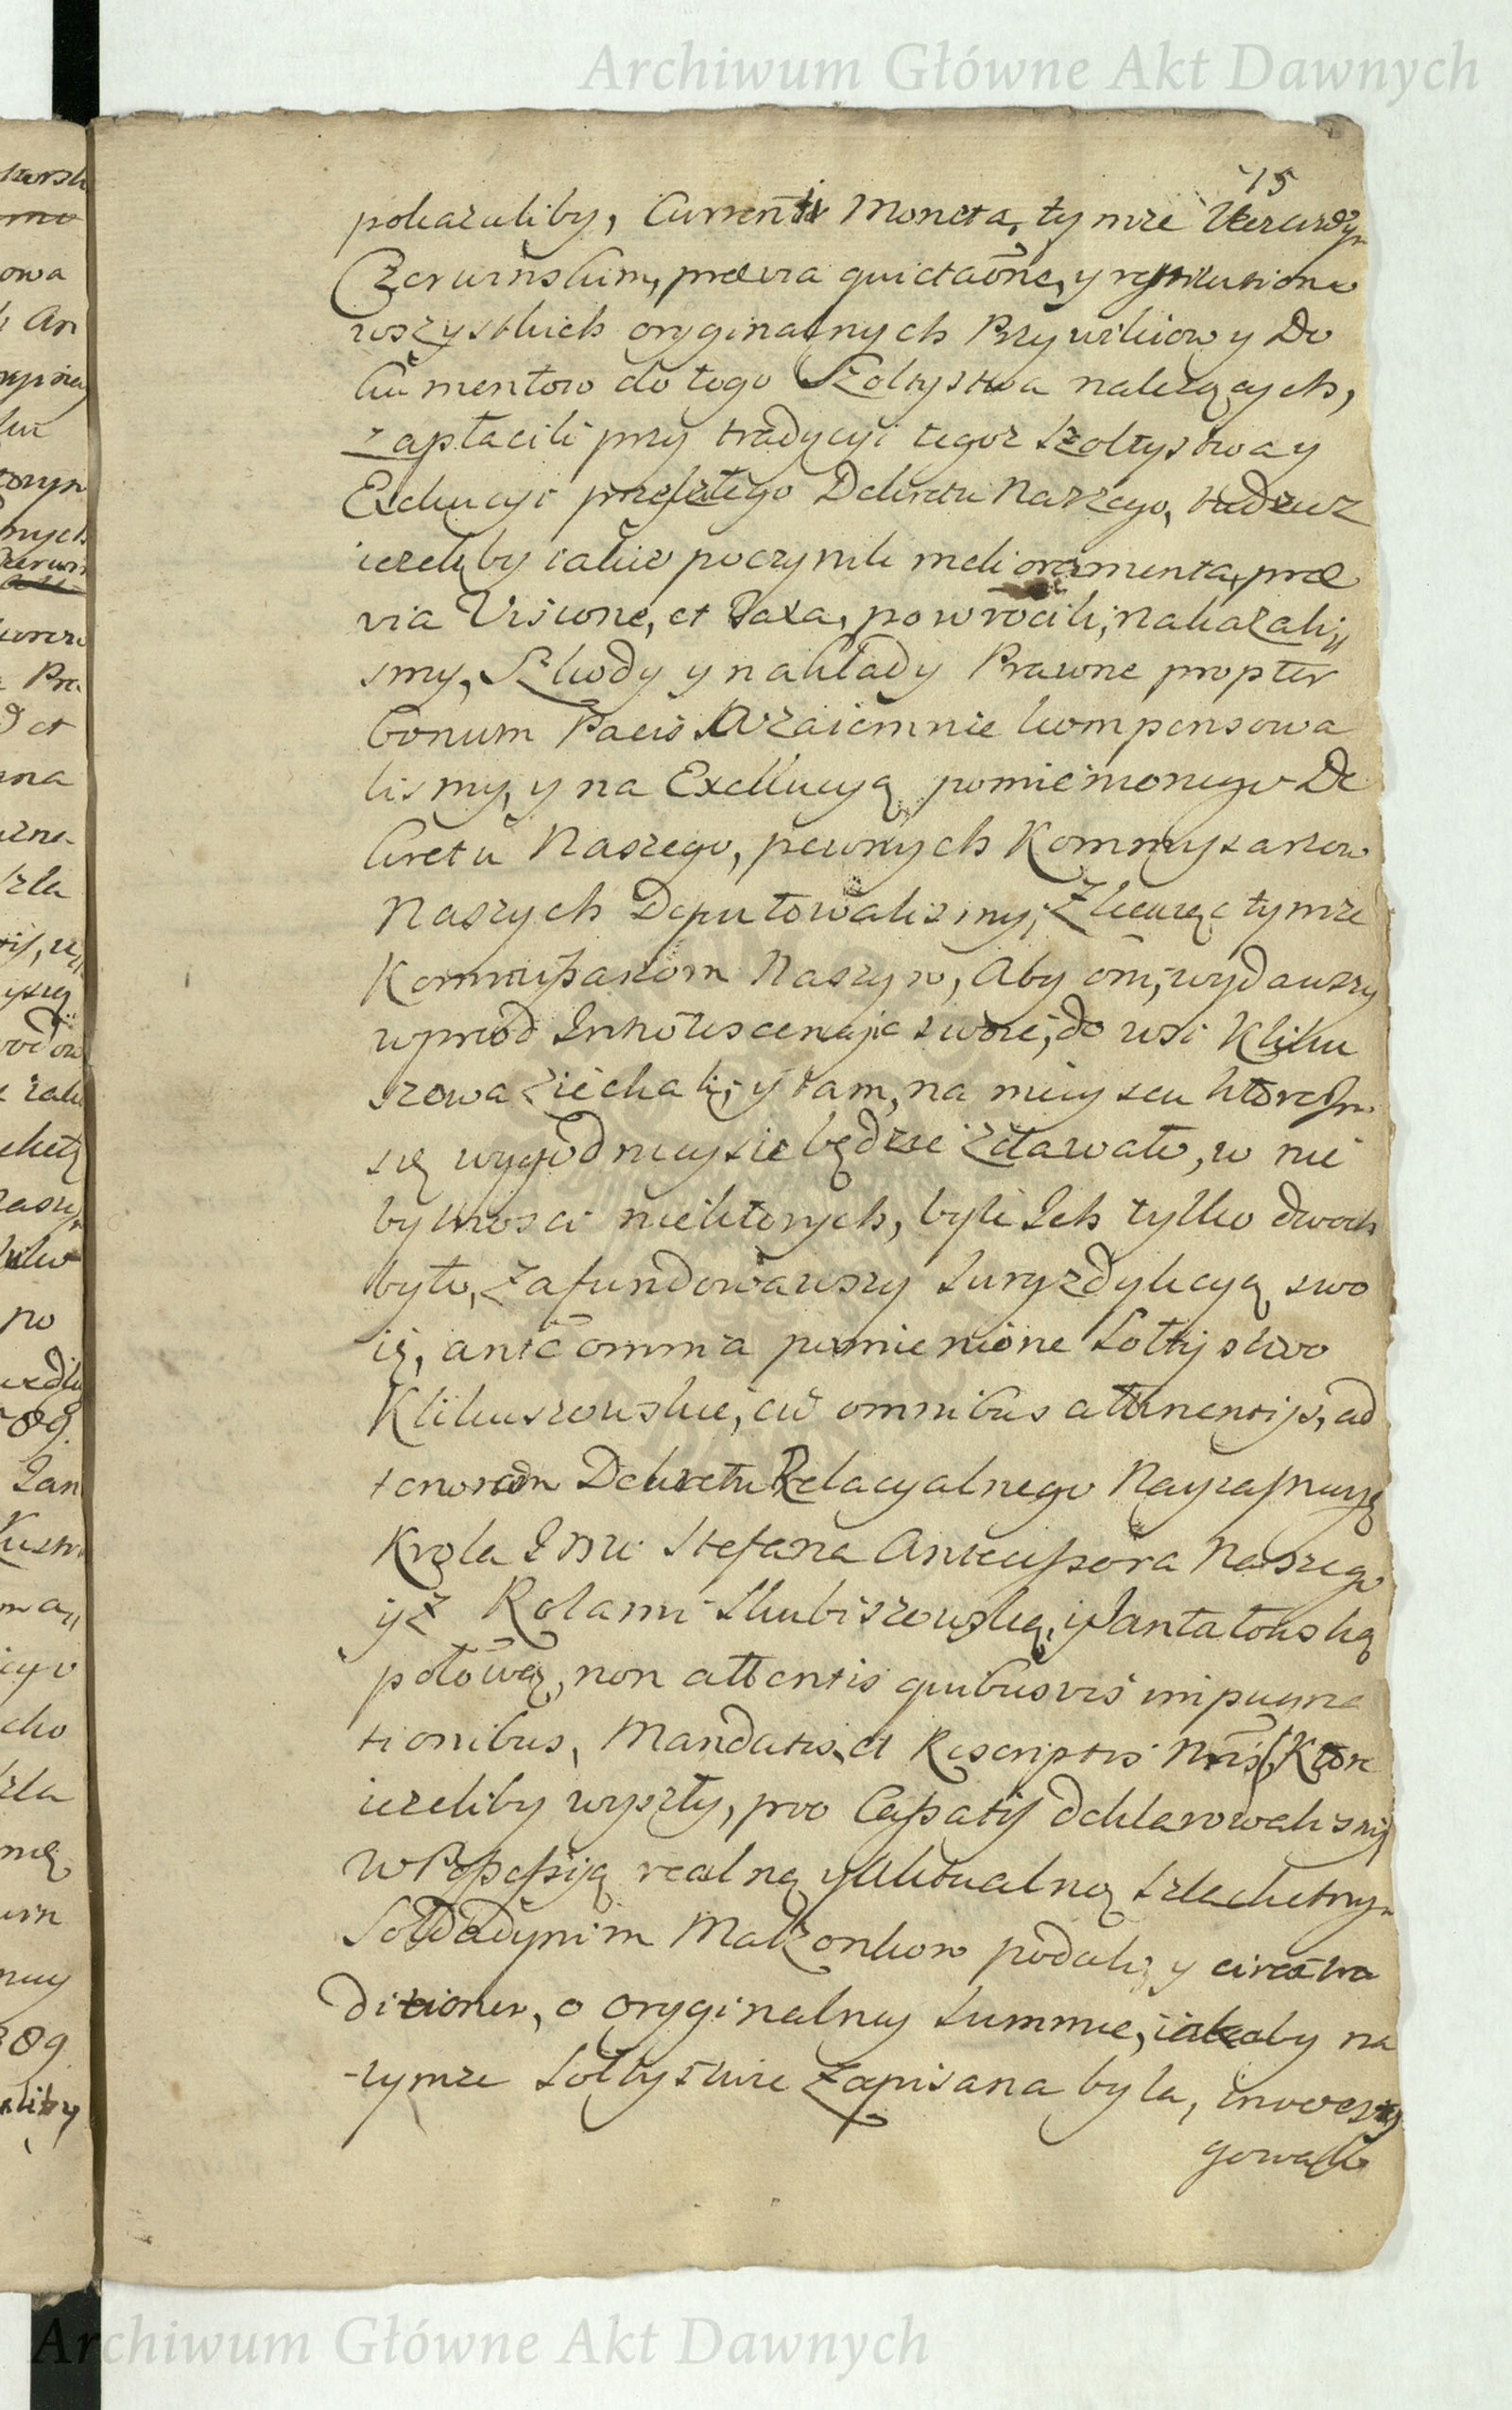 Archiwum Główne Akt Dawnych
15
pokazaliby, Currenti Moneta, tymże
Czerwinskim, prævia quictaõne, y restitutione
wszystkich oryginalnych Przywileiow y Do
kumentow do tego Szoltystwa należących,
zapłacili przy tradycyi tegoż Szołtystwa y
Exekucyi przeszłego Dekretu Naszego, tudziesz
ieżeliby iakie poczynili melioramenta, præ
via Visione, et Taxa, powrocili, nakazali„
smy, Szkody y nakłady Prawne propter
bonum Pacis Wzaiemnie kompensowa
lismy, y na Exekucyą pomienionego De
kretu Naszego, pewnych Kommyssarzow
Naszych Deputowalismy, Zlecaiąc tymże
Kommyssarzom Naszym, Aby oni, wydawszy
wprzod Innotescencye swoie, do wsi Kliku
szowa ziechali, y tam, na mieyscu ktorẽ Im
się wygodnieysze będzie zdawało, w nie
bytnosci niektorych, byle Ich tylko dwoch
było, zafundowawszy Juryzdykcyą swo
ię, antẽ omnia pomienione Soltystwo
Klikuszowskie, cũ omnibus attinentijs, ad
tenorem Dekretu Relacyalnego Nayiasnieysze
Krola Jmci Stefana Antecessora Naszego
y z Rolami Skubiszowską, y Jantatowską
połową, non attentis quibusvis impugna
tionibus, Mandatis, et Rescriptis Nris, Ktore
ieżeliby wyszły, pro Cassatis deklarowalismy
W Possessyą realną y Aktualną Szlachetnym
Małzonkow podali, y circa tra
ditionem, o oryginalney Summie, iakaby na
tymże Soltystwie zapisana byla, inwesty
gowali
Archiwum Główne Akt Dawnych